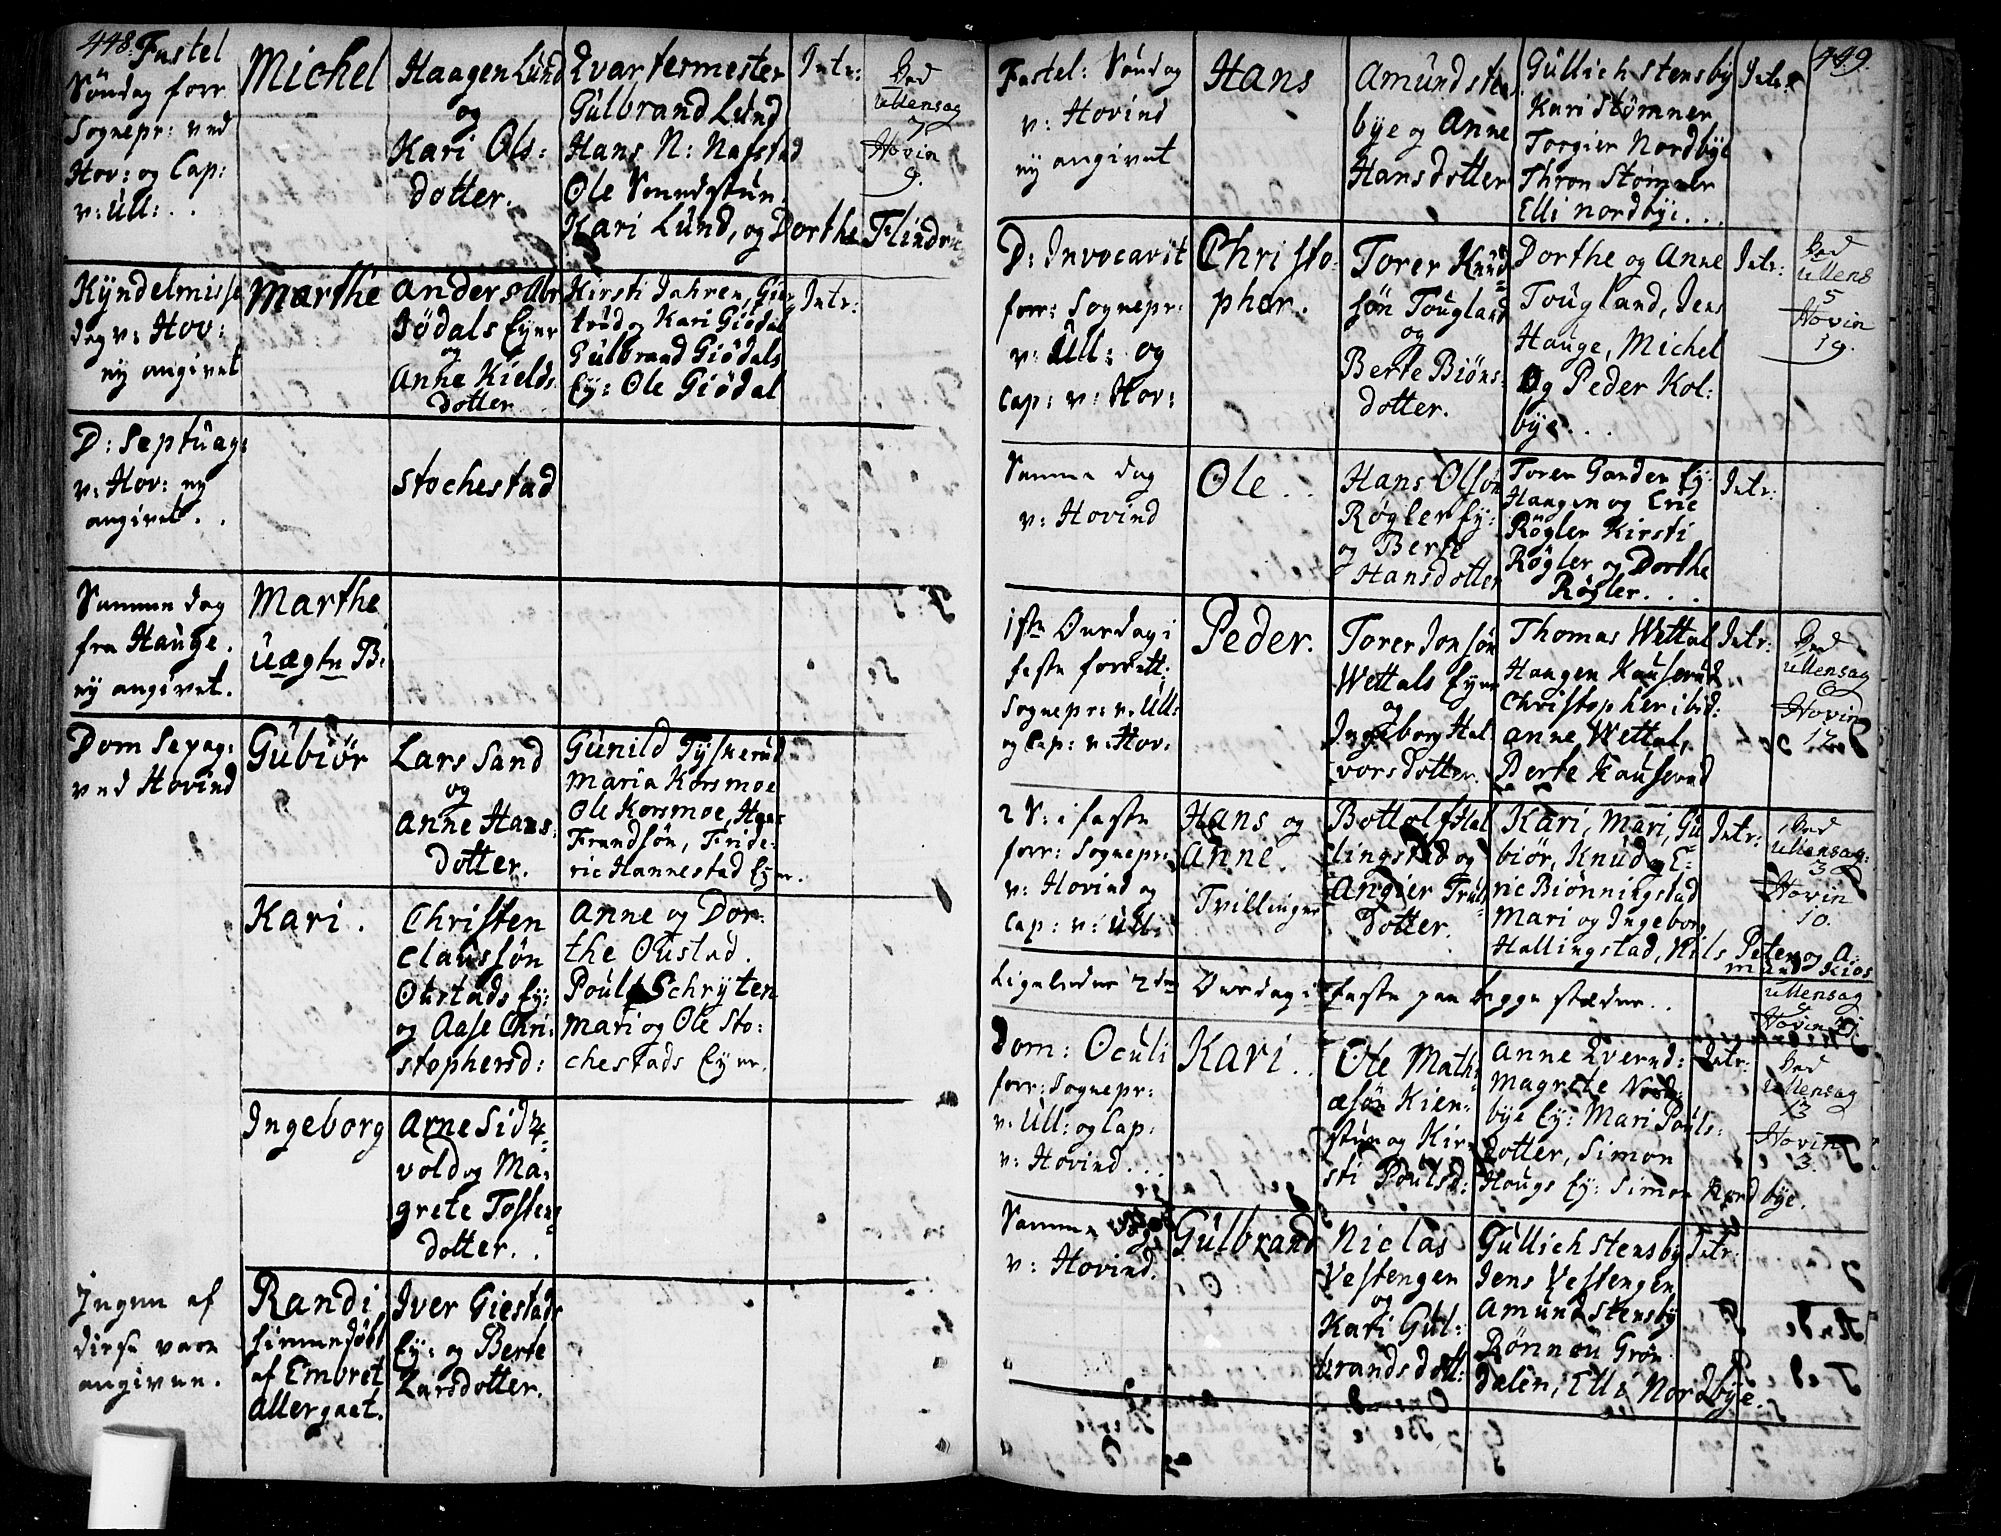 448. Fastel
Søndag forr
Sognepr: ved
Hov: og Cap:
v: Ull: . .
Michel
Haagen Lund
og
Kari Ols:
dotter.
Qvartermester
Gulbrand Lund
Hans N: Nafstad
Ole
Kari Lund, og Dorthe Flindr
Intr:
Ved
Ullensag
7
Hovin
9.
Kyndelmisse
dag v: Hov:
ny angivet
Marthe
Anders
Eyer
og
Anne Kields
dotter
Kirsti Jahren, Gier
trud og Kari Giødal
Gulbrand Giødals
Ey: Ole Giødal
Intr:
D: Septuag:
v: Hov: ny
angivet . .
Stochestad
Samme dag
fra Hauge.
ny angivet.
Marthe
Uægte B:
Dom Sepag:
ved Hovind
Gubiør
Lars Sand
og
Anne Hans
dotter.
Gunild Tyskerud
Maria Korsmoe
Ole Korsmoe, Hans
Frendsøn, Fride:
ric Hannestad Eyer.
Kari .
Christen
Claussøn
Oustads Ey:
og Aase Chri:
stophersd:
Anne og Dor:
the Oustad.
Poul Schryten
Mari og Ole Sto:
chestads Eyer.
Ingeborg
Arne Sid
vold og Ma:
grete Tosten
dotter. .
Ingen af
disse vare
angiven.
Randi
hiemmedøbt
af Embret
Allergaet.
Iver Giestads
Ey: og Berte
Larsdotter.
449.
Fastel: Søndag
v: Hovind
ny angivet
Hans
Amund Sten
bye og Anne
Hansdotter
Gullich Stensby
Kari Stømner
Torgier Nordbye
Thron Stomner
Elli Nordbye . . .
Intr:
D: Invocavit
forr: Sognepr:
v: Ull: og
Cap: v: Hov:
Christo:
pher.
Torer Knud
søn Tougland
og
Berte Biøns:
dotter.
Dorthe og Anne
Tougland, Jens
Hauge, Michel
og Peder Kol:
bye . . .
Intr:
Ved
Ullens
5
Hovin
19.
Samme dag
v: Hovind
Ole . .
Hans Olsøn
Røgler Ey:
og Berte
Hansdotter
Torer Gander Ey:
Haagen og Eric
Røgler Kirsti
Røgler og Dorthe
Røgler. . . .
Intr:
1ste Onsdag i
faste forrett:
Sognepr: v: Ull:
og Cap: v: Hov.
Peder.
Torer Jonsøn
Wettals Eyer
og
Ingeborg Hal
vorsdotter.
Thomas Wettal
Haagen Kauserud
Christopher ibid:
Anne Wettal,
Berte Kauserud
Intr:
Ved
Ullensag
6
Hovin
17.
2 S: i faste
forr: Sognepr:
v: Hovind og
Cap: v: Ull:
Hans og
Anne.
Tvillinger
Bottolf Hal
lingstad og
Angier Truls
Dotter.
Kari, Mari, Gu
biør, Knud og E:
ric Biønningstad
Mari og Ingeborg
Hallingstad, Nils Peter og A
mund Kios
Intr:
Ved
Ullensag:
3
Hovin
10.
Ligeledes 2den Onsdag i Faste paa begge stæder. .
Ullensag
Hovin
Dom: Oculi
forr: Sognepr:
v: Ull: og Cap:
v: Hovind . . .
Kari . .
Ole Math:
æsøn Kien:
stuen og Kir:
sti Poulsd:
Anne Qvernd:
Magrete Nord
bye Ey: Mari Pouls:
dotter, Simon
Hougs Ey: Simon Nordbye.
Intr:
Ved
Ullensag
3
Hovin
3.
Samme dag
v: Hovind.
Gulbrand
Niclas
Vestengen
og
Kari Gul:
brandsdott:
Gullich Stensby
Jens Vestengen,
Amund Stensby
Rønnou Grøn
dalen, Elli Nordbye.
Intr: